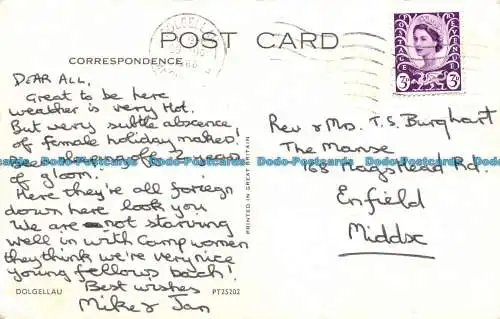 POST CARD
CORRESPONDENCE
DOLGELLAU
POSTAGE REVENUE
3D
3D
DEAR ALL,
Great to be here
weather is very Hot.
But very subtle abscence
of female holiday makers!
of gloom.
Here they're all foreign
down here look you
We are not starving
well in with Camp women
they think we're very nice
young fellows bach!
Best wishes
Mike & Jan
DOLGELLAU
PT25202
PRINTED IN GREAT BRITAIN
Rev & Mrs. T.S. Burghart
The Manse
168 Hagstead Rd.
Enfield
Middsx
Dodo-Postcards Dodo-Postcards Dodo-Postcards Dodo-Postcards Dodo-Postcards Dodo-Postcards